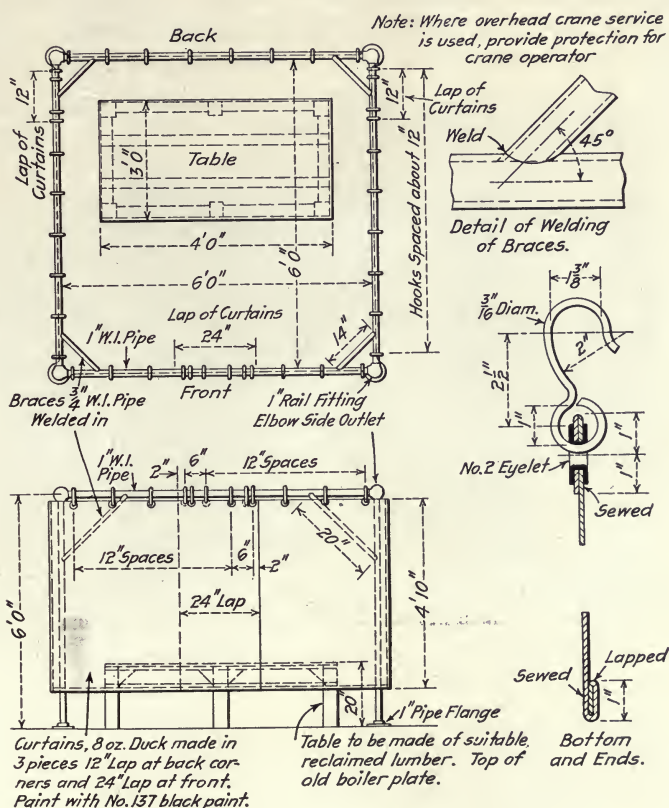 Back
Note: Where overhead crane service
is used, provide protection for
crane operator
12"
Lap of
Curtains
12"
Lap of
Curtains
Table
3'0"
4'0"
6'0"
6'0"
Hooks Spaced about 12"
Weld
45°
Detail of Welding
of Braces.
Lap of Curtains
24"
1" W.I. Pipe
14"
Front
Braces 3/4" W.I. Pipe
Welded in
1" Rail Fitting
Elbow Side Outlet
1 3/8"
3/16" Diam.
2"
2 1/2"
1"
1"
No. 2 Eyelet
1"
Sewed
1" W.I.
Pipe
2"
6"
12" Spaces
12" Spaces
6"
2"
20"
24" Lap
6'0"
4'10"
20"
1" Pipe Flange
Curtains, 8 oz. Duck made in
3 pieces 12" Lap at back cor-
ners and 24" Lap at front.
Paint with No. 137 black paint.
Table to be made of suitable
reclaimed lumber. Top of
old boiler plate.
Sewed
Lapped
1"
Bottom
and Ends.